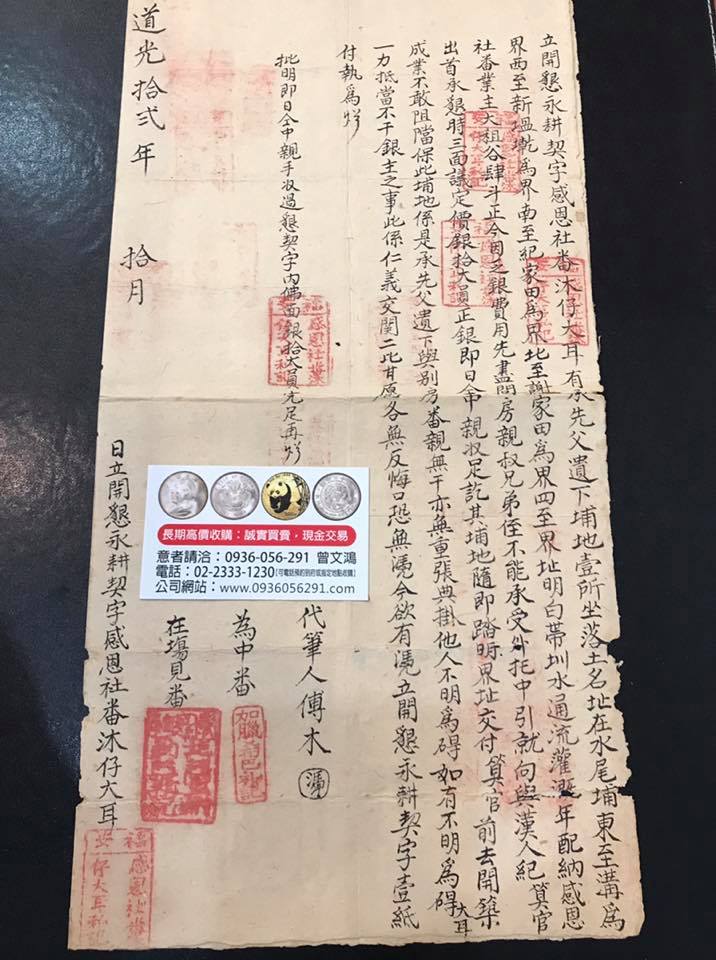 立開懇永耕契字感恩社番沐仔大耳有承先父遺下埔地壹所坐落土名址在水尾埔東至溝為
界西至新塭墘為界南至紀家田為界北至謝家田為界四至界址明白帶圳水通流灌溉年配納感恩
社番業主大租谷肆斗正今因乏銀費用先盡問房親叔兄弟侄不能承受外托中引就向與漢人紀算官
出首承懇時三面議定價銀拾大員正銀即日仝中親收足訖其埔地隨即踏明界址交付算官前去開築
成業不敢阻擋保此埔地係是承先父遺下與別房番親無干亦無重張典掛他人不明為碍如有不明為碍大耳
一力抵當不干銀主之事此係仁義交関二比甘愿各無反悔口恐無憑今欲有憑立開懇永耕契字壹紙
付執為炤
批明即日仝中親手收過懇契字內佛面銀拾大員完足再炤
代筆人傅木
為中番
在場見番
道光拾弍年 拾月 日立開懇永耕契字感恩社番沐仔大耳
感恩社番
長期高價收購：誠實買賣，現金交易
意者請洽：0936-056-291 曾文鴻
電話：02-2333-1230【可電話預約到府或指定地點收購】
公司網站：www.0936056291.com